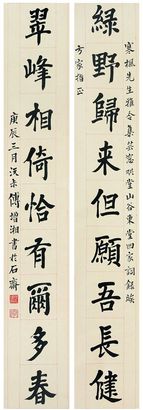 寒楓先生雅令集英窓明堂山谷東堂四家詞銘竢
方家指正
綠野歸來但願吾長健
翠峰相倚恰有爾多春
庚辰三月沅未傅增湘書於石齋